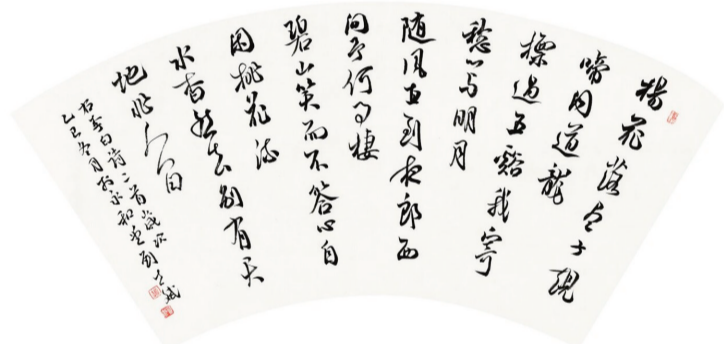 楊花落尽子規
啼聞道龍
標過五谿我寄
愁心与明月
隨風直到夜郎西
問予何事棲
碧山笑而不答心自
閑桃花流
水杳然去別有天
地非人間
右李白詩二首歲次
乙巳冬月於永和堂劉